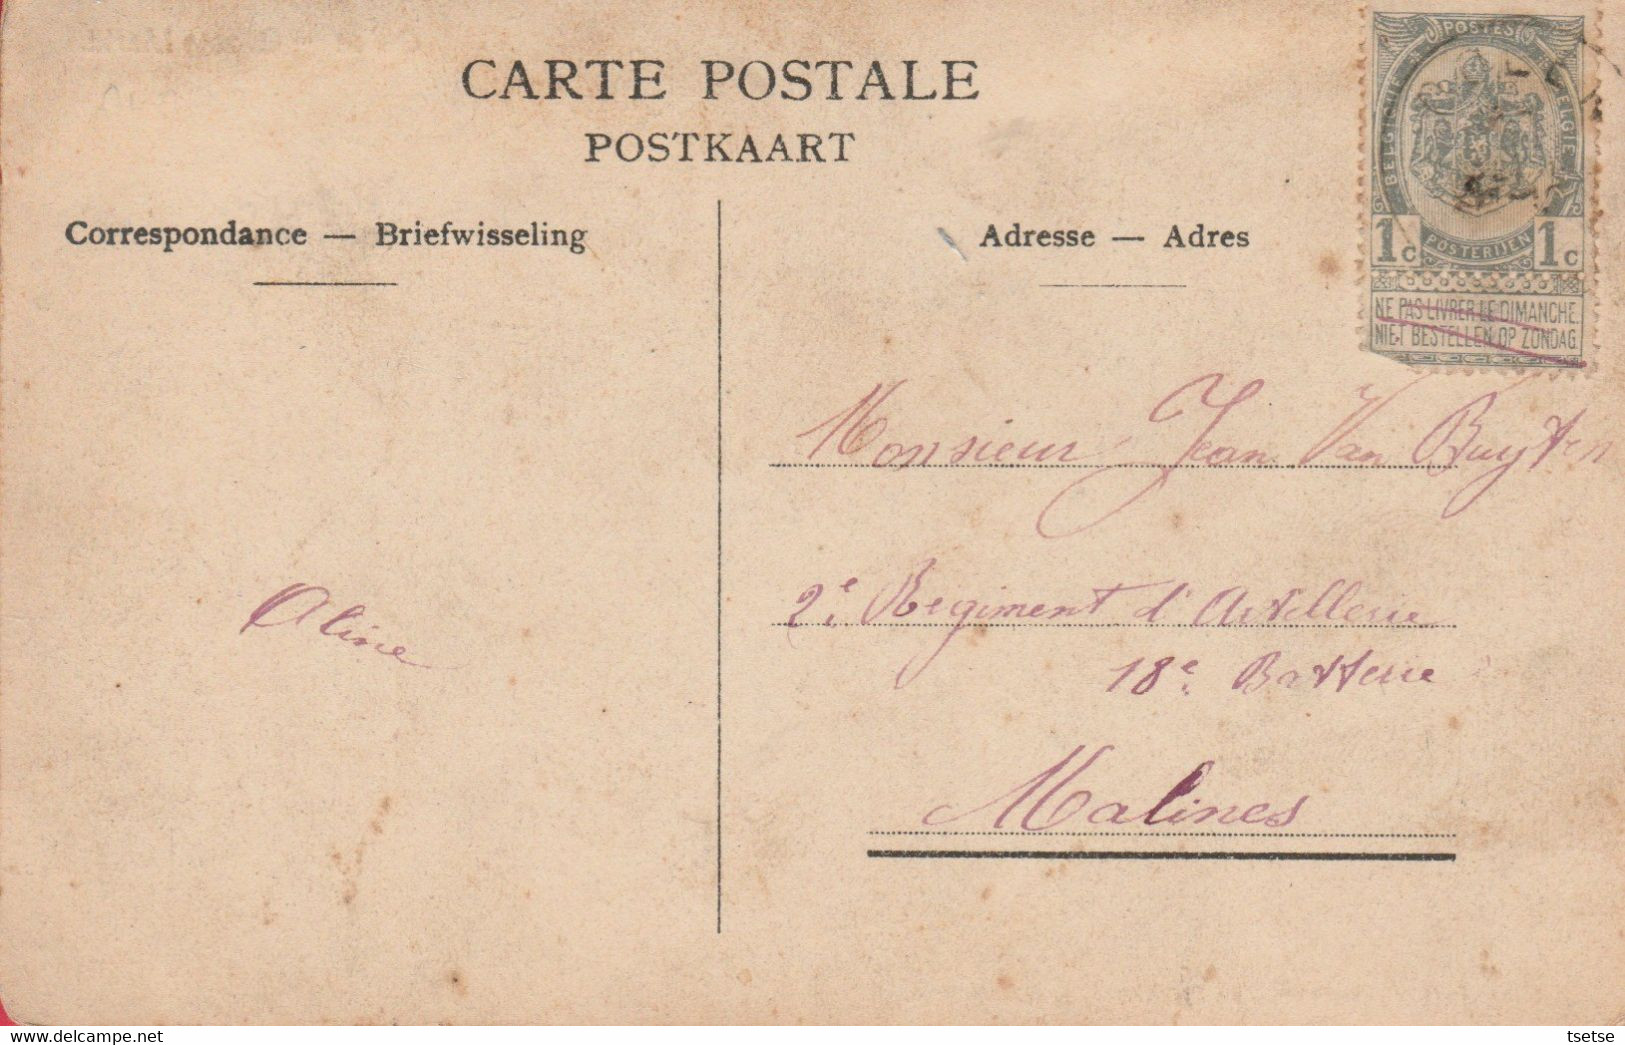 CARTE POSTALE
POSTKAART
Correspondance — Briefwisseling
Adresse — Adres
POSTES
BELGIQUE
BELGIE
1c POSTERIJEN 1c
NE PAS LIVRER LE DIMANCHE.
NIET BESTELLEN OP ZONDAG.
Monsieur Jean Van Buyten
2e Regiment d'Artillerie
18e Batterie
Malines
Aline
tsetse